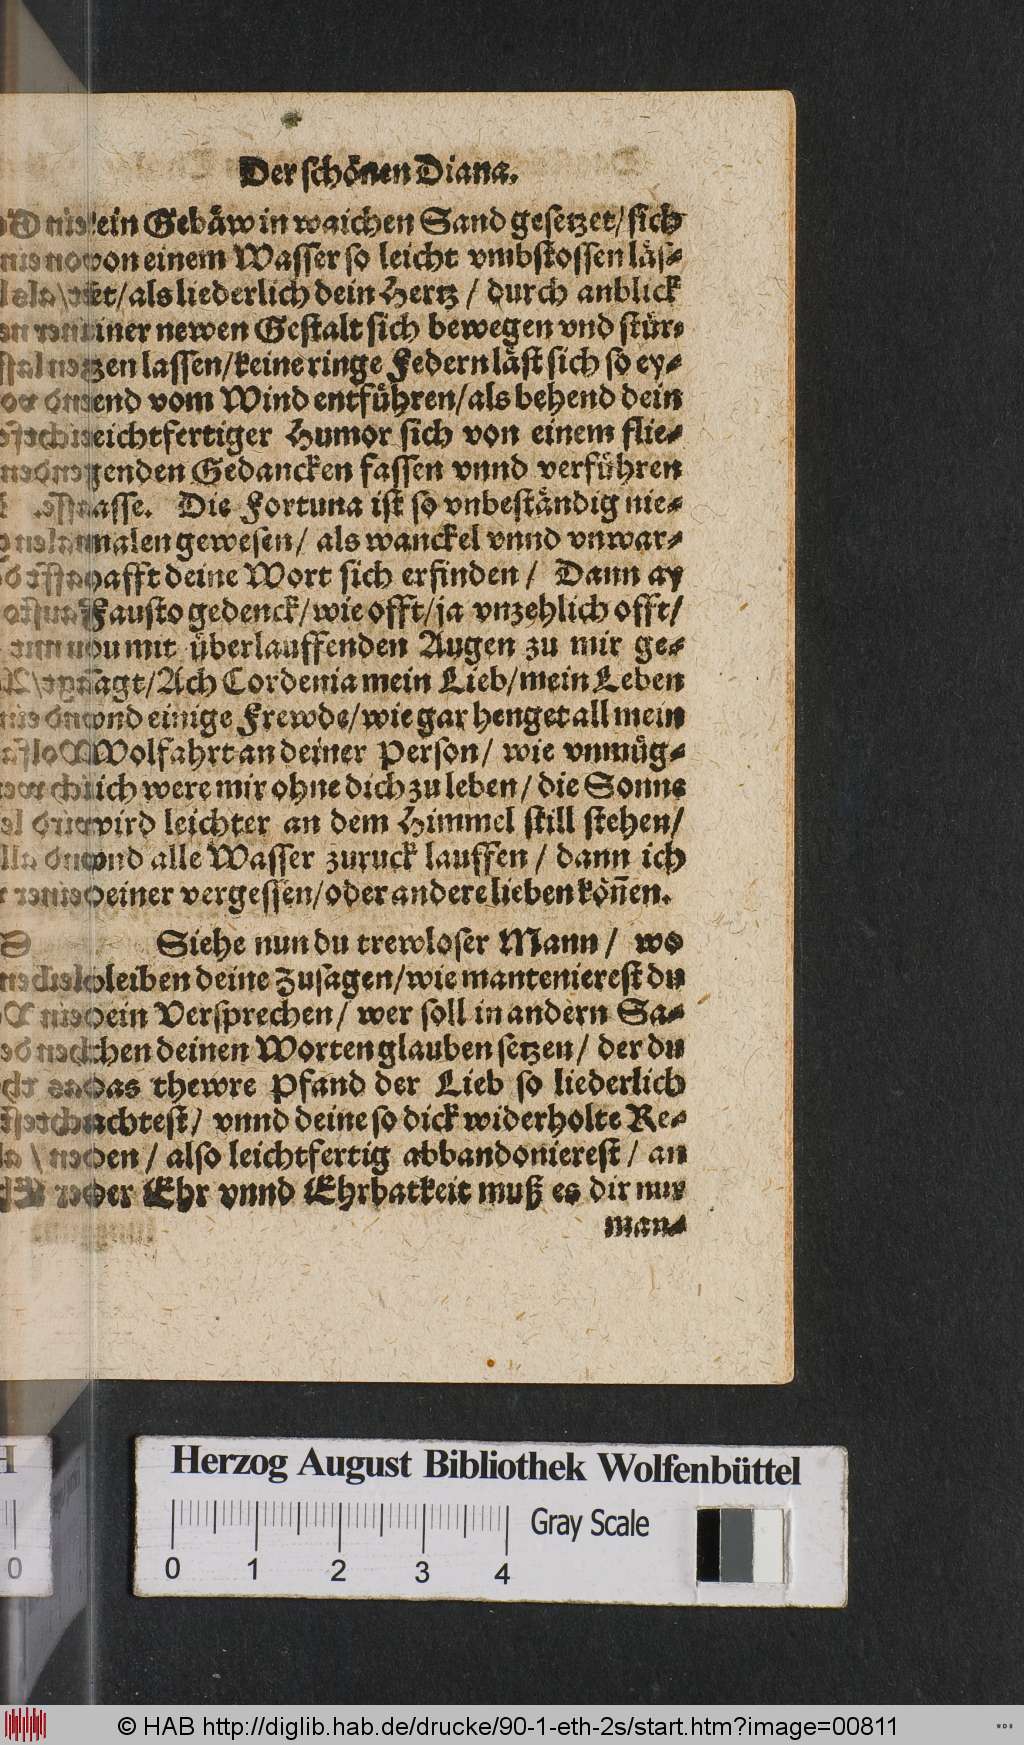 Der schönen Diana.
ein Gebäw in waichen Sand gesetzet/ sich
von einem Wasser so leicht vmbstossen läs-
et/ als liederlich dein Hertz / durch anblick
iner newen Gestalt sich bewegen vnd stür-
tzen lassen/ keine ringe Federn läst sich so ey-
end vom Wind entführen/ als behend dein
leichtfertiger Humor sich von einem flie-
genden Gedancken fassen vnnd verführen
lasse. Die Fortuna ist so vnbeständig nie-
malen gewesen/ als wanckel vnnd vnwar-
hafft deine Wort sich erfinden / Dann ay
Fausto gedenck/ wie offt/ ja vnzehlich offt/
du mit überlauffenden Augen zu mir ge-
sagt/ Ach Cordenia mein Lieb/ mein Leben
vnd einige Frewde/ wie gar henget all mein
Wolfahrt an deiner Person/ wie vnmüg-
lich were mir ohne dich zu leben/ die Sonne
wird leichter an dem Himmel still stehen/
vnd alle Wasser zuruck lauffen / dann ich
deiner vergessen/ oder andere lieben köñen.
Siehe nun du trewloser Mann / wo
bleiben deine Zusagen/ wie mantenierest du
dein Versprechen/ wer soll in andern Sa-
chen deinen Worten glauben setzen/ der du
das thewre Pfand der Lieb so liederlich
achtest/ vnnd deine so dick widerholte Re-
den / also leichtfertig abbandonierest / an
der Ehr vnnd Ehrbatkeit muß es dir nur
man-
Herzog August Bibliothek Wolfenbüttel
Gray Scale
0 1 2 3 4
0
© HAB http://diglib.hab.de/drucke/90-1-eth-2s/start.htm?image=00811